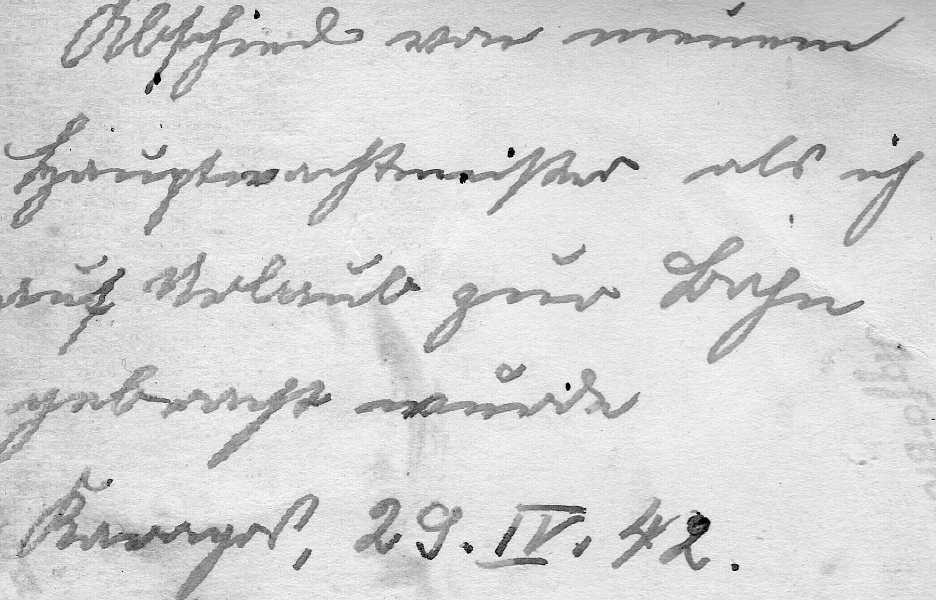 Abschied von meinem
Hauptwachtmeister als ich
auf Urlaub zur Bahn
gebracht wurde
29. IV. 42.